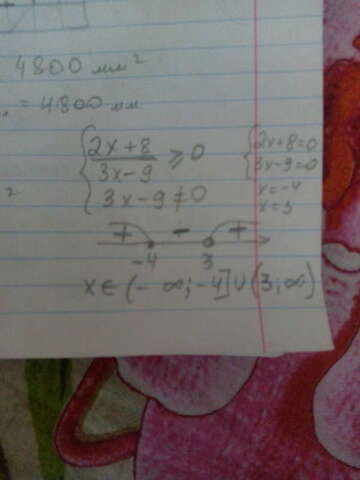 4800 мм²
= 4800 мм
2x+8
3x-9 ≥ 0
3x-9 ≠ 0
2x+8=0
3x-9=0
x=-4
x=3
2
+ - +
-4 3
x ∈ (- ∞; -4] ∪ (3, ∞)